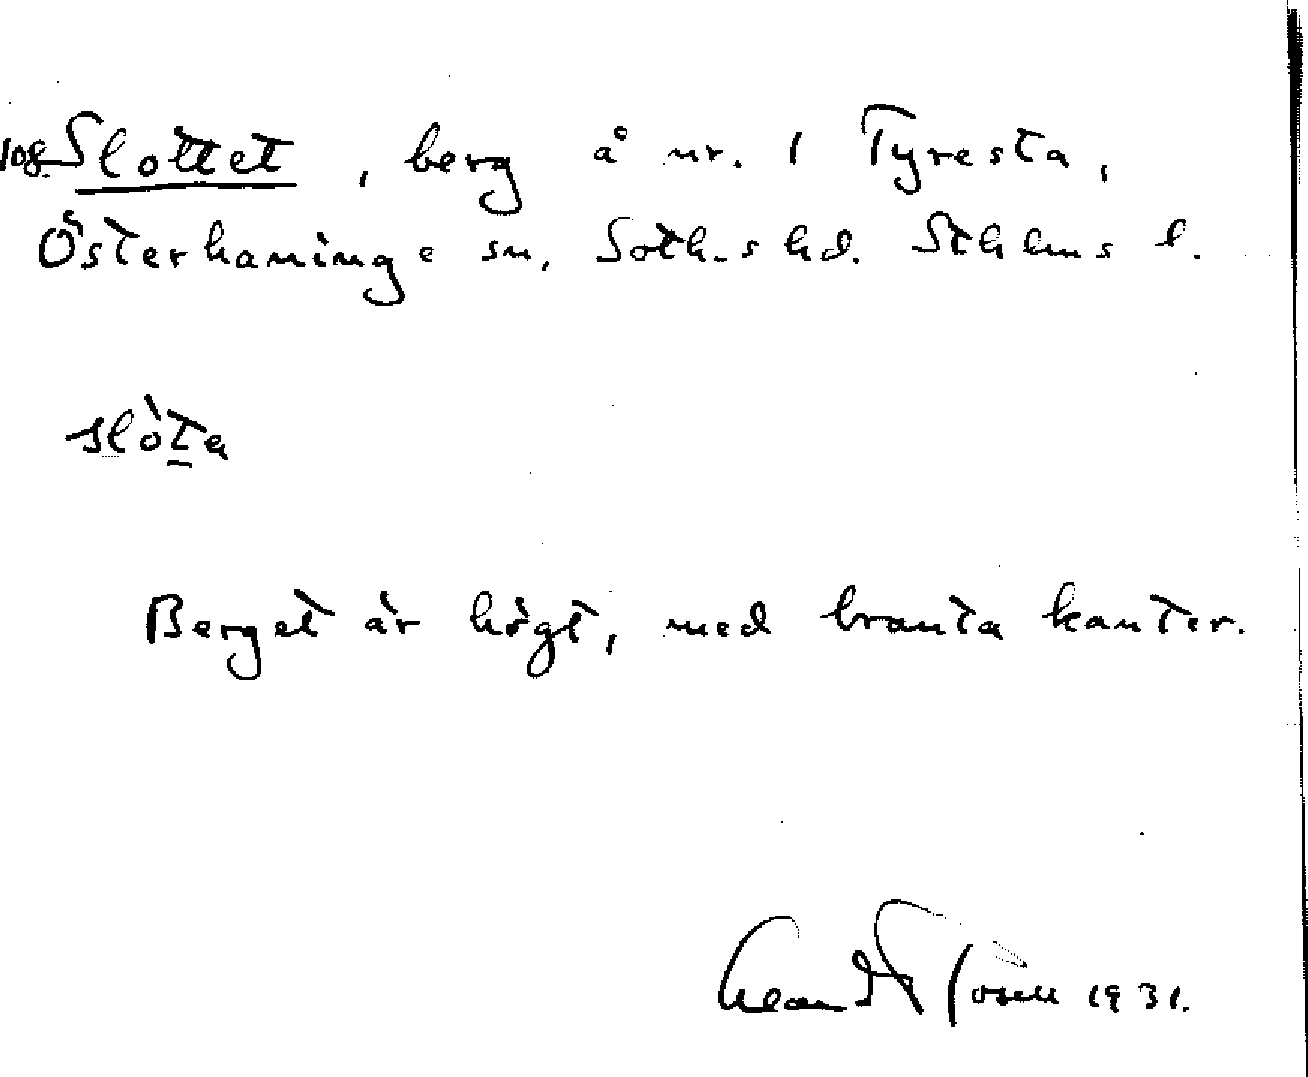 108. Slottet, berg å nr. 1 Tyresta,
Österhaninge sn, Soth-s hd. Sthlms l.
slòta
Berget är högt, med branta kanter.
1931.